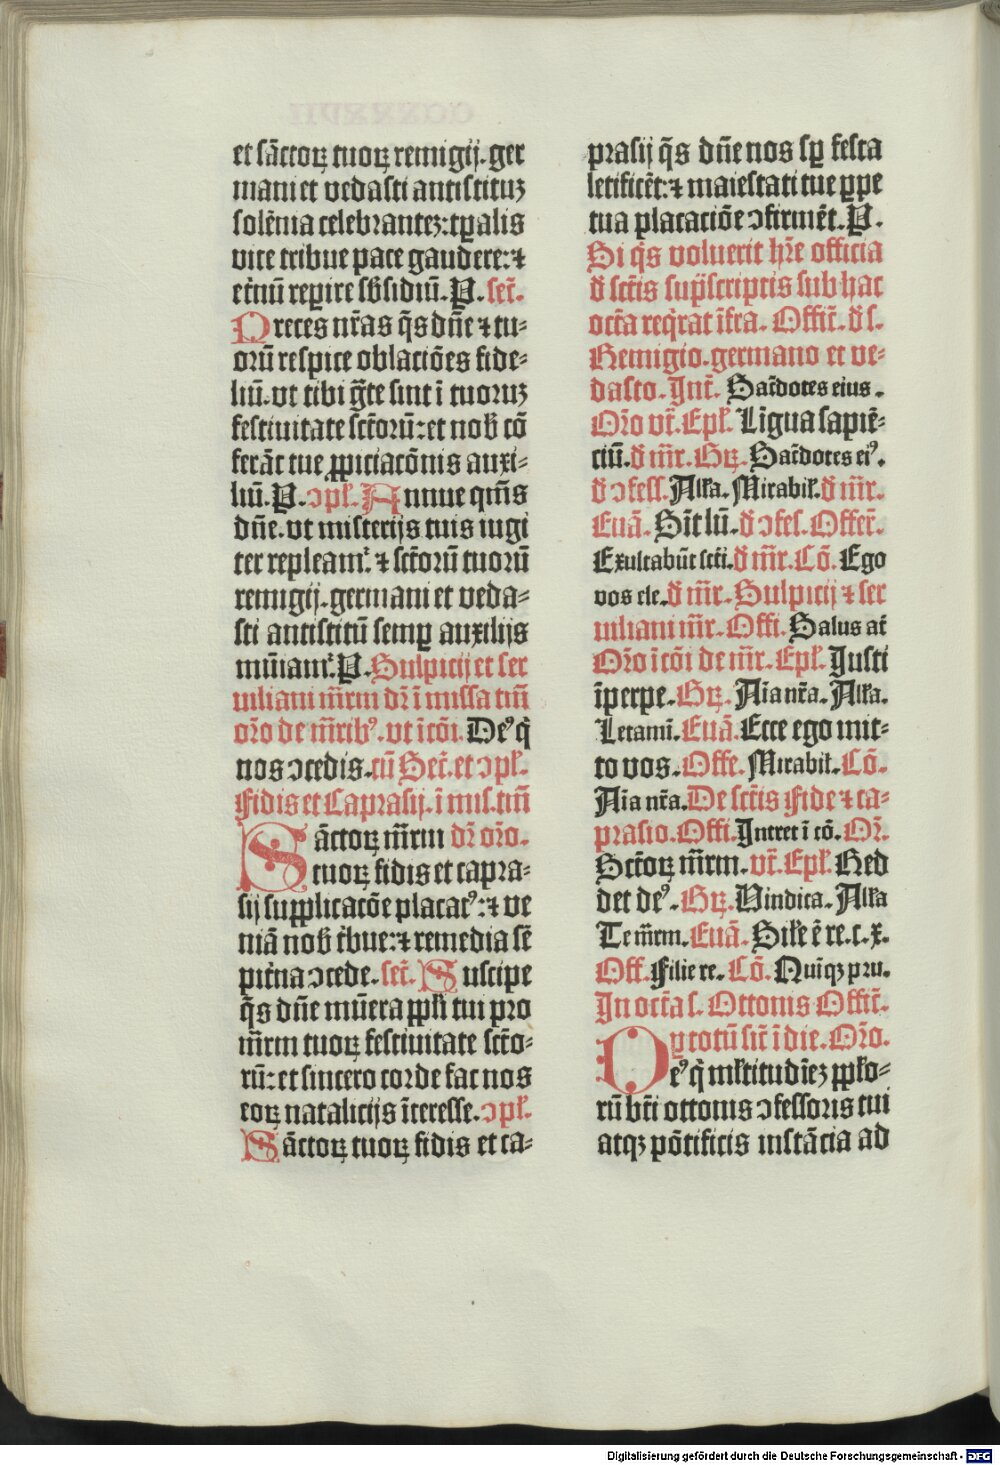 et sāctoꝝ tuoꝝ remigij. ger
mani et vedasti antistituꝫ
solēnia celebrantez: tꝑalis
vite tribue pace gaudere: ⁊
et̄nū reꝑire sb̄sidiū. P. sec̄.
Preces nr̄as q̄s dn̄e ⁊ tu-
orū respice oblaciōes fide-
liū. vt tibi gͣte sint ī tuoruꝫ
festiuitate sct̄orū: et nob̄ cō
ferāt tue ꝓpiciacōnis auxi-
liū. P. ɔpl̄. Annue qm̄s
dn̄e. vt misterijs tuis iugi
ter repleamᷣ. ⁊ sct̄orū tuorū
remigij. germani et veda-
sti antistitū semꝑ auxilijs
mūiamᷣ. P. Sulpicij et ser
uiliani mr̄m dr̄ ī missa tm̄
or̄o de mr̄ibꝰ. vt ī cōi. Deꝰ q̇
nos ɔcedis. cū Sec̄. et ɔpl̄.
Fidis et Caprasij. ī mis. tm̄
Sāctoꝝ mr̄m dr̄ or̄o.
tuoꝝ fidis et capra-
sij supplicacōe placatꝰ: ⁊ ve
niā nob̄ t̄bue: ⁊ remedia sē
pit̄na ɔcede. sec̄. Suscipe
q̄s dn̄e mūera ppl̄i tui pro
mr̄m tuoꝝ festiuitate sct̄o-
rū: et sincero corde fac nos
eoꝝ natalicijs īteresse. ɔpl̄.
Sāctoꝝ tuoꝝ fidis et ca-
prasij q̄s dn̄e nos sꝑ festa
letificēt: ⁊ maiestati tue ꝑpe
tua placaciōe ɔfirmēt. P.
Si q̇s voluerit hr̄e officia
đ sct̄is supͣscriptis sub hac
octa req̇rat īfra. Offic̄. đ s.
Remigio. germano et ve-
dasto. Int̄. Sac̄dotes eius.
Or̄o vt̄. Epl̄. Līgua sapiē-
ciū. đ mr̄. Gꝝ. Sac̄dotes eiꝰ.
đ ɔfess. All̄a. Mirabil̄. đ mr̄.
Euā. Sīt lū. đ ɔfes. Offer̄.
Exultabūt scti. đ mr̄. Cō. Ego
vos ele. đ mr̄. Sulpicij ⁊ ser
uiliani mr̄. Offi. Salus at̄
Or̄o ī cōi de mr̄. Epl̄. Justi
īperpe. Gꝝ. Aīa nr̄a. All̄a.
Letami. Euā. Ecce ego mit-
to vos. Offe. Mirabil̄. Cō.
Aīa nr̄a. De sct̄is Fide ⁊ ca-
prasio. Offi. Intret ī cō. Or̄.
Sct̄oꝝ mr̄m. vt̄. Epl̄. Red
det deꝰ. Gꝝ. Vindica. All̄a
Te mr̄m. Euā. Sil̄e ē re. c. x.
Off. Filie re. Cō. Quīqꝫ pru.
In octa s. Ottonis Offic̄.
Oy totū sic̄ ī die. Or̄o.
Deꝰ q̇ ml̄titudīeꝫ ppl̄o-
rū bt̄i ottonis ɔfessoris tui
atqꝫ pōtificis instācia ad
Digitalisierung gefördert durch die Deutsche Forschungsgemeinschaft - DFG